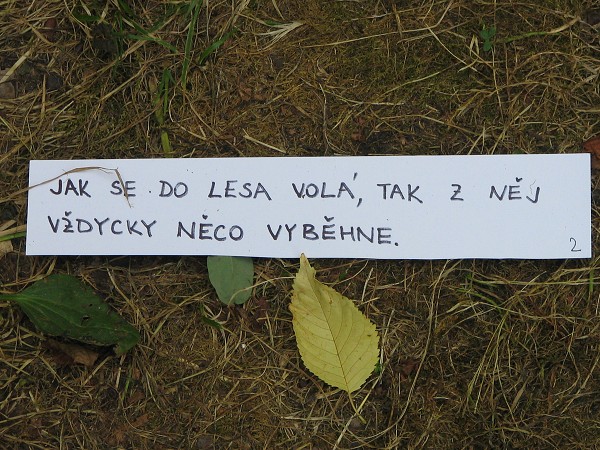 JAK SE DO LESA VOLÁ, TAK Z NĚJ
VŽDYCKY NĚCO VYBĚHNE.
2